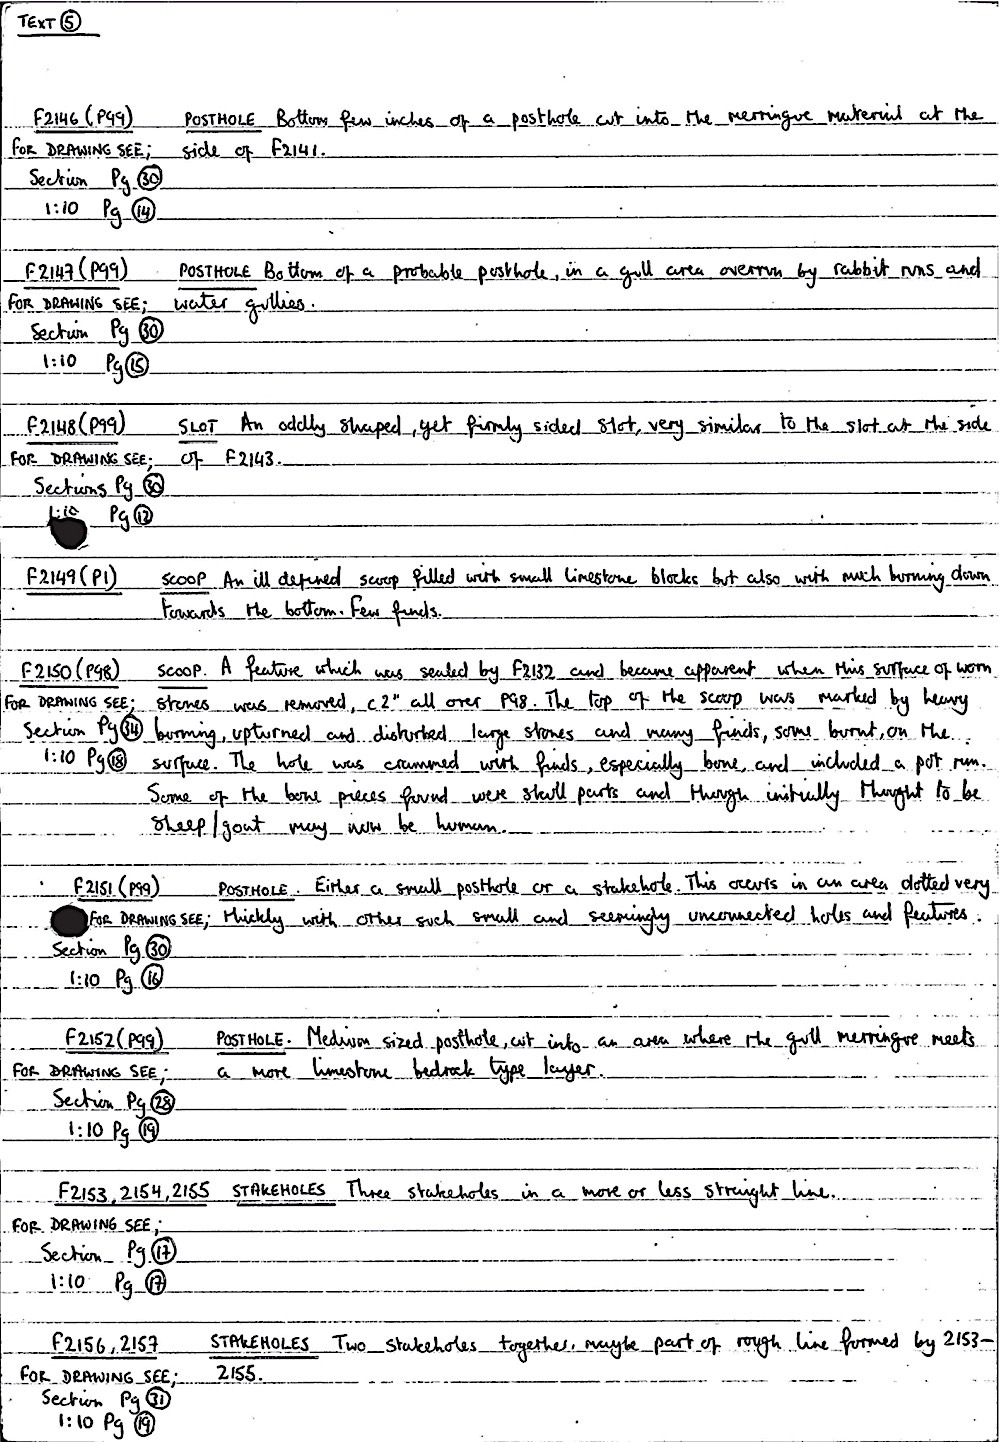 TEXT 5
F2146 (P99) POSTHOLE Bottom few inches of a posthole cut into the merringue material at the
FOR DRAWING SEE; side of F2141.
Section Pg 30
1:10 Pg 14
F2147 (P99) POSTHOLE Bottom of a probable posthole, in a gull area overrun by rabbit runs and
FOR DRAWING SEE; water gullies.
Section Pg 30
1:10 Pg 15
F2148 (P99) SLOT An oddly shaped, yet firmly sided slot, very similar to the slot at the side
FOR DRAWING SEE; of F2143.
Sections Pg 30
1:10 Pg 12
F2149 (P1) SCOOP An ill defined scoop filled with small limestone blocks but also with much burning down
towards the bottom. Few finds.
F2150 (P98) SCOOP. A feature which was sealed by F2132 and became apparent when this surface of worn
FOR DRAWING SEE; stones was removed, c2" all over P98. The top of the scoop was marked by heavy
Section Pg 34 burning, upturned and disturbed large stones and many finds, some burnt, on the
1:10 Pg 18 surface. The hole was crammed with finds, especially bone, and included a pot run.
Some of the bone pieces found were skull parts and though initially thought to be
sheep/goat may now be human.
F2151 (P99) POSTHOLE. Either a small posthole or a stakehole. This occurs in an area dotted very
FOR DRAWING SEE; thickly with other such small and seemingly unconnected holes and features.
Section Pg 30
1:10 Pg 16
F2152 (P99) POSTHOLE. Medium sized posthole, cut into an area where the gull merringue meets
FOR DRAWING SEE; a more limestone bedrock type layer.
Section Pg 28
1:10 Pg 19
F2153, 2154, 2155 STAKEHOLES Three stakeholes in a more or less straight line.
FOR DRAWING SEE;
Section Pg 17
1:10 Pg 17
F2156, 2157 STAKEHOLES Two stakeholes together, maybe part of rough line formed by 2153-
FOR DRAWING SEE; 2155.
Section Pg 31
1:10 Pg 19